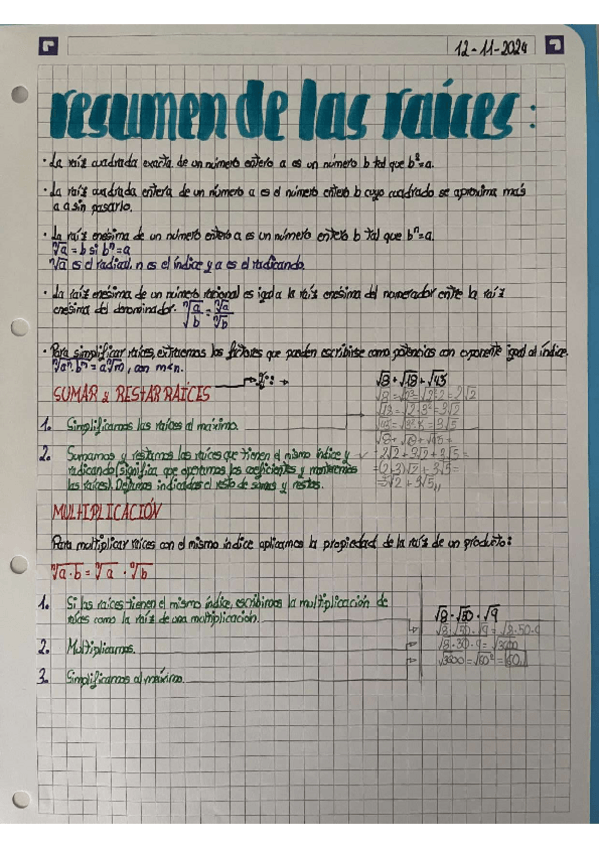 12-11-2024
resumen de las raíces:
· La raíz cuadrada exacta de un número entero a es un número b tal que b²=a.
· La raíz cuadrada entera de un número a es el número entero b cuyo cuadrado se aproxima más
a a sin pasarlo.
· La raíz enésima de un número entero a es un número entero b tal que bⁿ=a.
ⁿ√a = b si bⁿ=a
ⁿ√a es el radical, n es el índice y a es el radicando.
· La raíz enésima de un número racional es igual a la raíz enésima del numerador entre la raíz
enésima del denominador. ⁿ√(a/b) = ⁿ√a/ⁿ√b
· Para simplificar raíces, extraemos los factores que pueden escribirse como potencias con exponente igual al índice.
ⁿ√aⁿ·bᵐ = a ⁿ√m, con m<n.
SUMAR & RESTAR RAÍCES
√8 + √18 + √45
√18 = √2·3² = 3√2
1. Simplificamos las raíces al máximo.
√8 + √18 + √45 =
2. Sumamos y restamos las raíces que tienen el mismo índice y
2√2 + 3√2 + 3√5 =
radicando (significa que operamos los coeficientes y mantenemos
=(2+3)√2 + 3√5=
las raíces). Dejamos indicadas el resto de sumas y restas.
=5√2 + 3√5
MULTIPLICACIÓN
Para multiplicar raíces con el mismo índice aplicamos la propiedad de la raíz de un producto:
ⁿ√a·b = ⁿ√a · ⁿ√b
1. Si las raíces tienen el mismo índice, escribimos la multiplicación de
raíces como la raíz de una multiplicación.
√8·√50·√9
√8·√50·√9 = √8·50·9
2. Multiplicamos.
= √3600
3. Simplificamos al máximo.
√3600 = √60² = 60